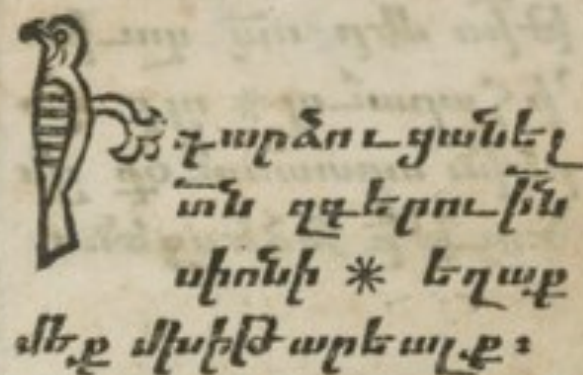 Ի դարձուցանել
տն զգերութին
սիոնի ※ եղաք
մեք մխիթարեալք։